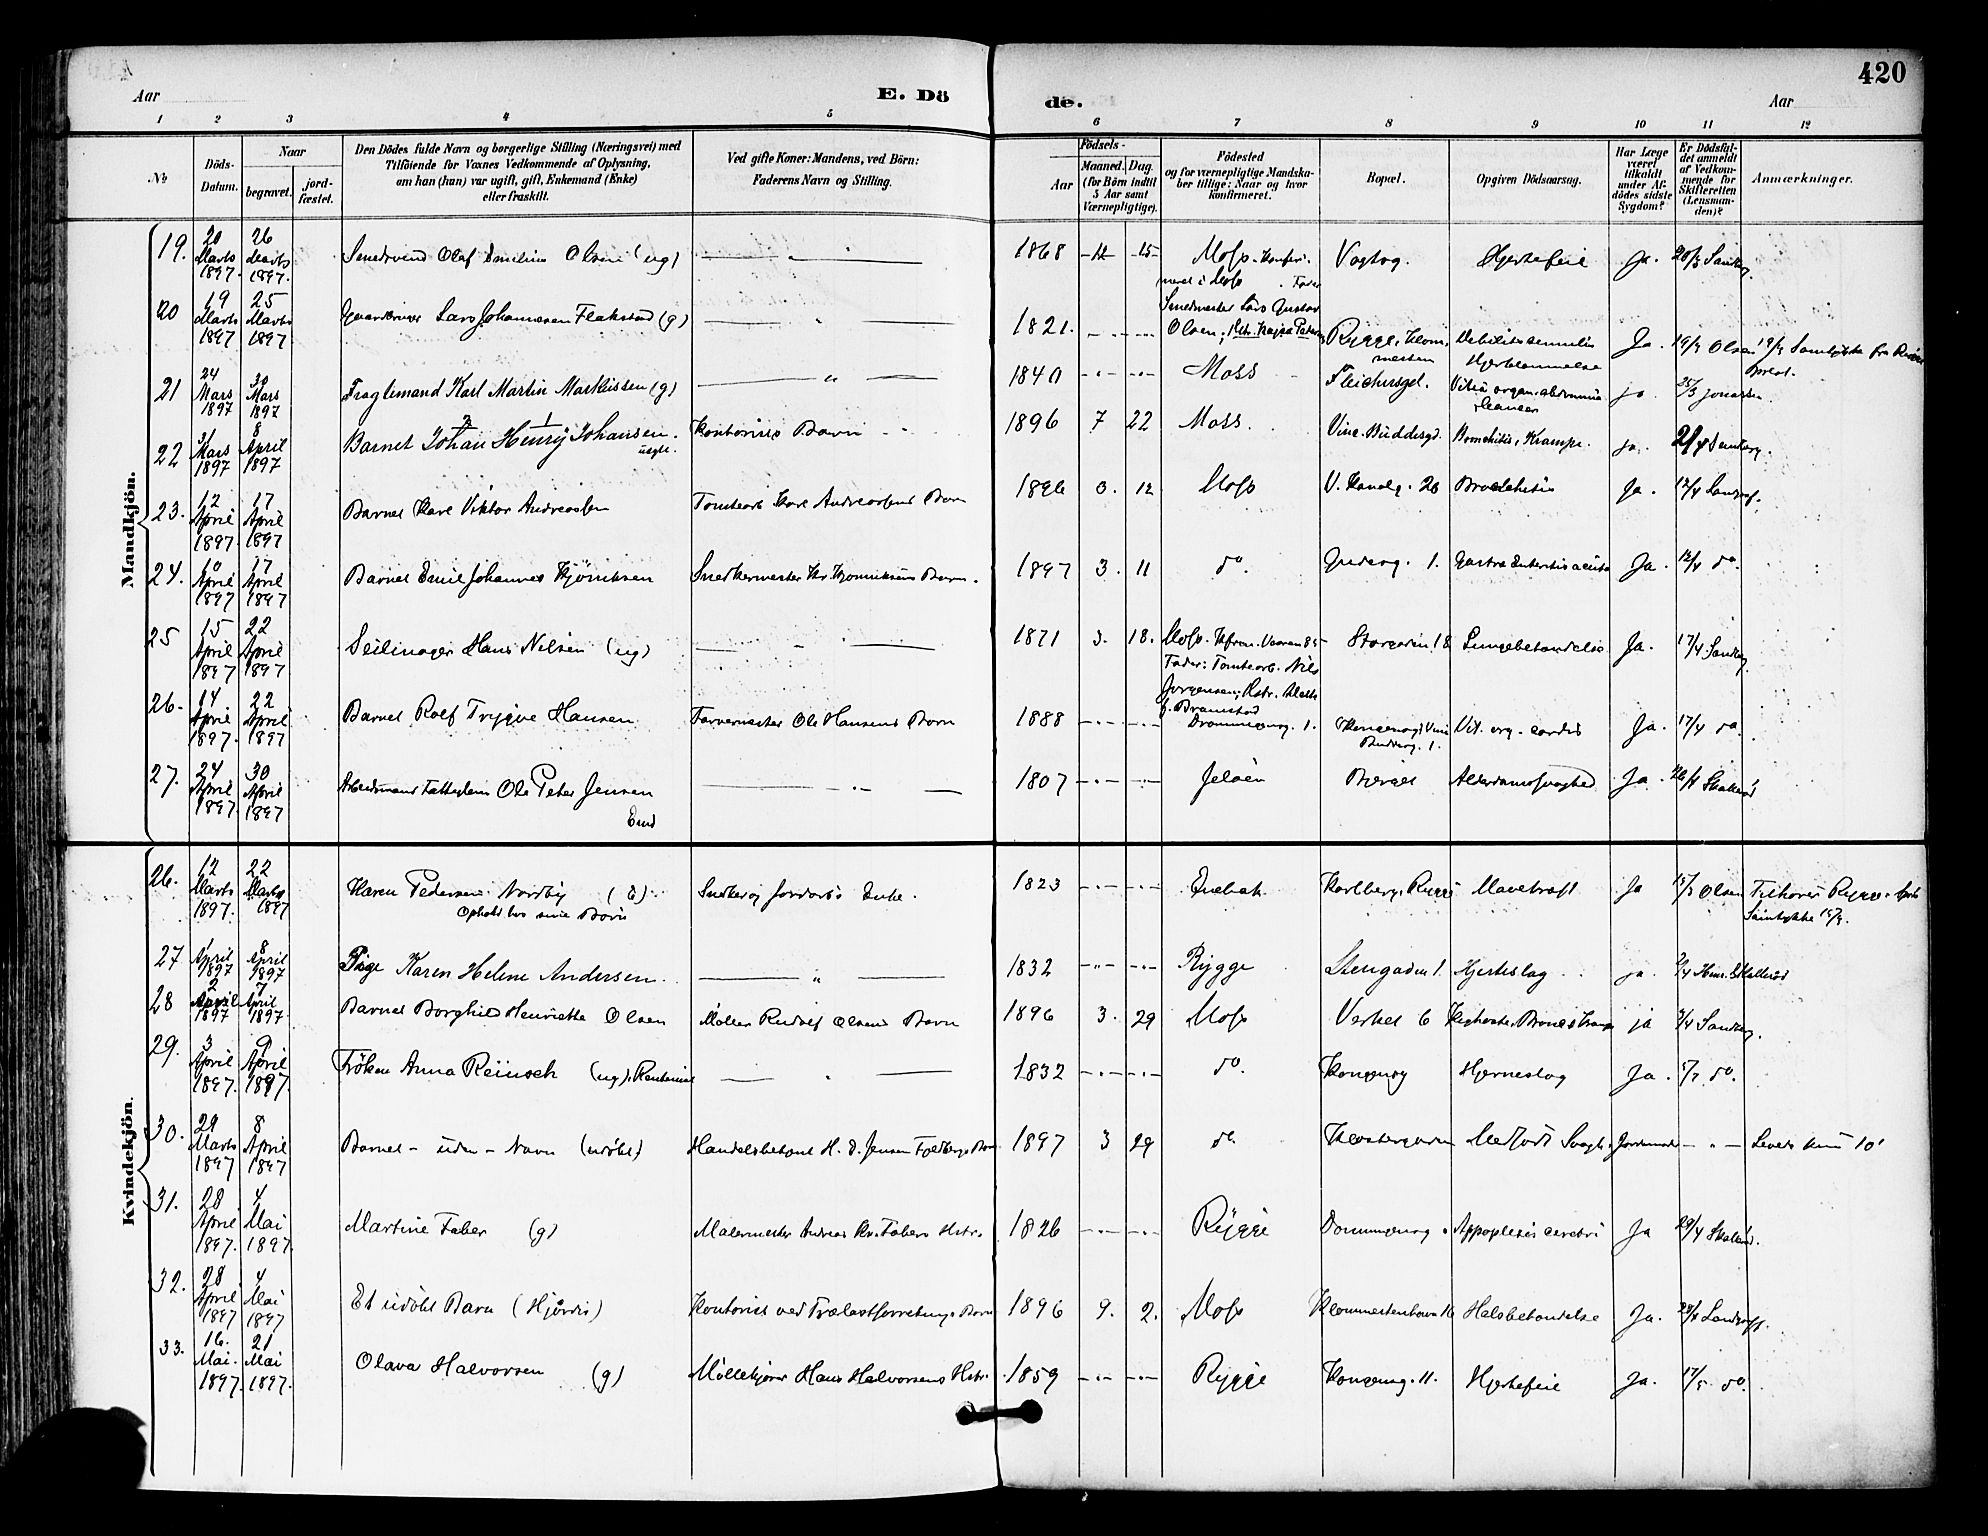 420
Aar E. Dö de. Aar
1 2 3 4 5 6 7 8 9 10 11 12
No Döds-Datum. Naar begravet. jordfæstet.
Den Dödes fulde Navn og borgerlige Stilling (Næringsvei) med
Tilföiende for Voxnes Vedkommende af Oplysning,
om han (hun) var ugift, gift, Enkemand (Enke)
eller fraskilt.
Ved gifte Koner: Mandens, ved Börn:
Faderens Navn og Stilling.
Födsels-
Aar Maaned. Dag.
(for Börn indtil
5 Aar samt
Værnepligtige).
Födested
og for værnepligtige Mandska-
ber tillige: Naar og hvor
konfirmeret.
Bopæl.
Opgiven Dödsaarsag.
Har Læge
været
tilkaldt
under Af-
dödes sidste
Sygdom?
Er Dödsfal-
det anmeldt
af Vedkom-
mende for
Skifteretten
(Lensman-
den)?
Anmærkninger.
Mandkjön.
19. 20 Marts 1897. 26 Marts 1897. Smedsvend Olaf Emilius Olsen (ug) — " — 1868 12 15 Moss. Konfir-
meret i Moss. Fader
Smedmester Lars Gustav
Olsen; Vogtog. Hjertefeil Ja. 20/3 Sandberg.
20 19 Marts 1897 25 Marts 1897 Gaardbruger Lars Johannesen Flakstad (g) — " — 1821. — " — Rygge, Debilitas senilis
Hjertelammelse Ja. 19/3 Olsen
21 24 Mars 1897 30 Mars 1897 Fragtemand Karl Martin Markussen (g) — " — 1840 — " — Moss Fleichersgd. Vitia organ. abdominis
Cancer ja 25/3 Jonassen.
22 31 Mars 1897 8 April 1897 Barnet Johan Henry Johansen.
uægte. Kontorists Barn 1896 7 22 Moss. Vinc. Buddesgd. Bronchitis, Krampe. ja. 2/4 Sandberg.
23. 12 April 1897 17 April 1897 Barnet Karl Viktor Andreassen Tomtearb Karl Andreassens Barn 1896 12 Moss V. Kanalg. 26 Bronchitis Ja. 12/4 Sandberg.
24. 10 April 1897 17 April 1897 Barnet Emil Johannes Kjöniksen Snedkermester Kr Kjöniksens Barn. 1897 3. 11 do. Gudesg. 1. Gastro Enteritis acuta Ja. 12/4 do.
25 15 April 1897 22 April 1897 Seilmager Hans Nilsen (ug) — " — 1871 3. 18. Moss. Kfrm. Vaaren 85
Fader: Tomtearb. Nils
Jørgensen;
f. Bramstad Storgaden 18 Lungebetændelse Ja. 17/4 Sandberg.
26. 14 April 1897. 22 April 1897 Barnet Rolf Trygve Hansen Farvermester Ole Hansens Barn 1888 — " — Dronningensg. 1. Vit. org. cordis Ja. 17/4 do.
27. 24 April 1897. 30 April 1897 Arbeidsmand Fattiglem Ole Peter Jensen
Emd — " — 1807 — " — Jeløen Alderdomssvaghed Ja. 26/4 Skallerud
Kvindekjön.
26. 12 Marts 1897. 22 Marts 1897 Karen Pedersen Nordby (E).
Ophold hos sine Børn Snedker og Jordarb's Enke. 1823 — " — Enebak Karlberg, Rygge Mavekræft Ja 15/3 Olsen Tilhører Rygge.
Samtykke
27 1 April 1897 8 April 1897 Pige Karen Helene Andersen — " — 1832 — " — Rygge Stengaden 1. Hjerteslag ja. 2/4 Skallerud
28 2 April 1897 7 April 1897. Barnet Borghild Henriette Olsen Møller Rudolf Olsens Barn 1896 3. 29 Moss Verket 6 ja 3/4 Sandberg.
29. 3 April 1897. 9 April 1897. Frøken Anna Reinsch (ug). — " — 1832 — " — do. Kongensg Hjerneslag Ja. do.
30. 29 Marts 1897 8 April 1897 Barnet - uden - Navn (udöbt) Handelsbetjent H. E. Jensen Fjeldbergs Barn 1897 3 29 do. Klostergaden Medfødt Svagh. Jordmoder — " — Levede kun 10'
31. 28 April 1897. 4 Mai 1897. Martine Faber (g) Malermester Andreas Kr. Fabers Hstr. 1826 — " — Rygge Dronningensg Appoplexia cerebri Ja 29/4 Skallerud.
32. 28 April 1897 4 Mai 1897 Et udöbt Barn (Hjørdis) Kontorist ved Trælastforretnings Barn 1896 9. 2. Moss Halsbetændelse Ja. 29/4 Sandberg.
33. 16. Mai. 1897. 21 Mai 1897. Olava Halvorsen (g) Möllekjører Hans Halvorsens Hstr. 1859 — " — Rygge Kongensg. 11. Hjertefeil Ja. 17/5 do.